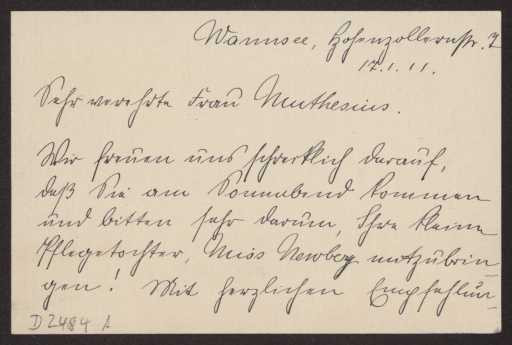 Wannsee, Hohenzollernstr. 7
17.1.11.
Sehr verehrte Frau Muthesius.
Wir freuen uns schrecklich darauf,
daß Sie am Sonnabend kommen
und bitten sehr darum, Ihre kleine
Pflegetochter, Miss Newbery mitzubrin-
gen! Mit herzlichen Empfehlun-
D 2484 A